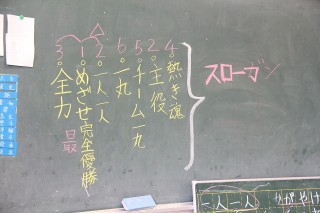 スローガン
4 熱き魂
2 主役
5 チーム一丸
6 一丸
2 一人一人
1 めざせ完全優勝!
3 全力
最
一人一人
かがやけ